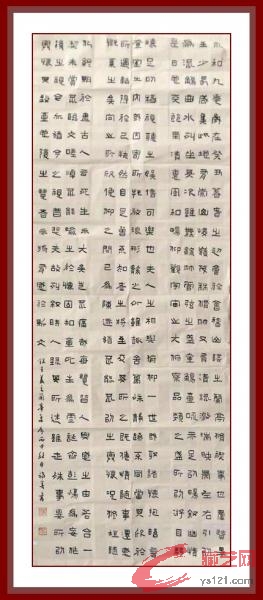 永和九年歲在癸丑暮春之初會於會稽山陰之蘭亭修禊事也羣賢畢
至少長咸集此地有崇山峻嶺茂林修竹又有清流激湍映帶左右引
以為流觴曲水列坐其次雖無絲竹管弦之盛一觴一詠亦足以暢敘幽情
是日也天朗氣清惠風和暢仰觀宇宙之大俯察品類之盛所以遊目騁
懷足以極視聽之娛信可樂也夫人之相與俯仰一世或取諸懷抱悟言
一室之內或因寄所託放浪形骸之外雖趣舍萬殊靜躁不同當其欣於
所遇暫得於己快然自足不知老之將至及其所之既倦情隨事遷感
慨係之矣向之所欣俛仰之間已為陳跡猶不能不以之興懷況修短隨
化終期於盡古人云死生亦大矣豈不痛哉每覽昔人興感之由若合一
契未嘗不臨文嗟悼不能喻之於懷固知一死生為虛誕齊彭殤為妄作
後之視今亦猶今之視昔悲夫故列敘時人錄其所述雖世殊事異所以
興懷其致一也後之覽者亦將有感於斯文 王羲之蘭亭序
藏艺网
ys121.com